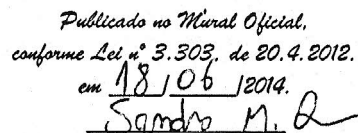 Publicado no Mural Oficial,
conforme Lei nº 3.303, de 20.4.2012.
em 18 / 06 /2014.
Sandro M. R